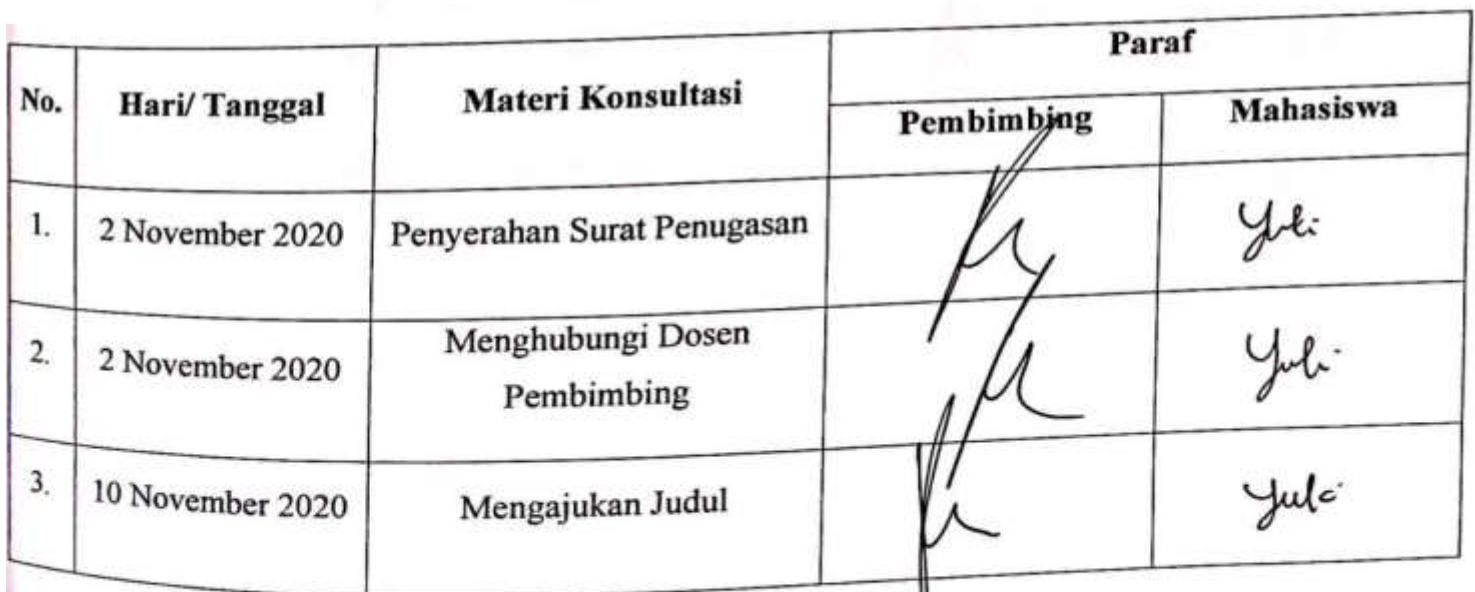 Paraf
No. Hari/ Tanggal Materi Konsultasi
Pembimbing Mahasiswa
1. 2 November 2020 Penyerahan Surat Penugasan Yuli
2. 2 November 2020 Menghubungi Dosen
Pembimbing Yuli
3. 10 November 2020 Mengajukan Judul Yuli